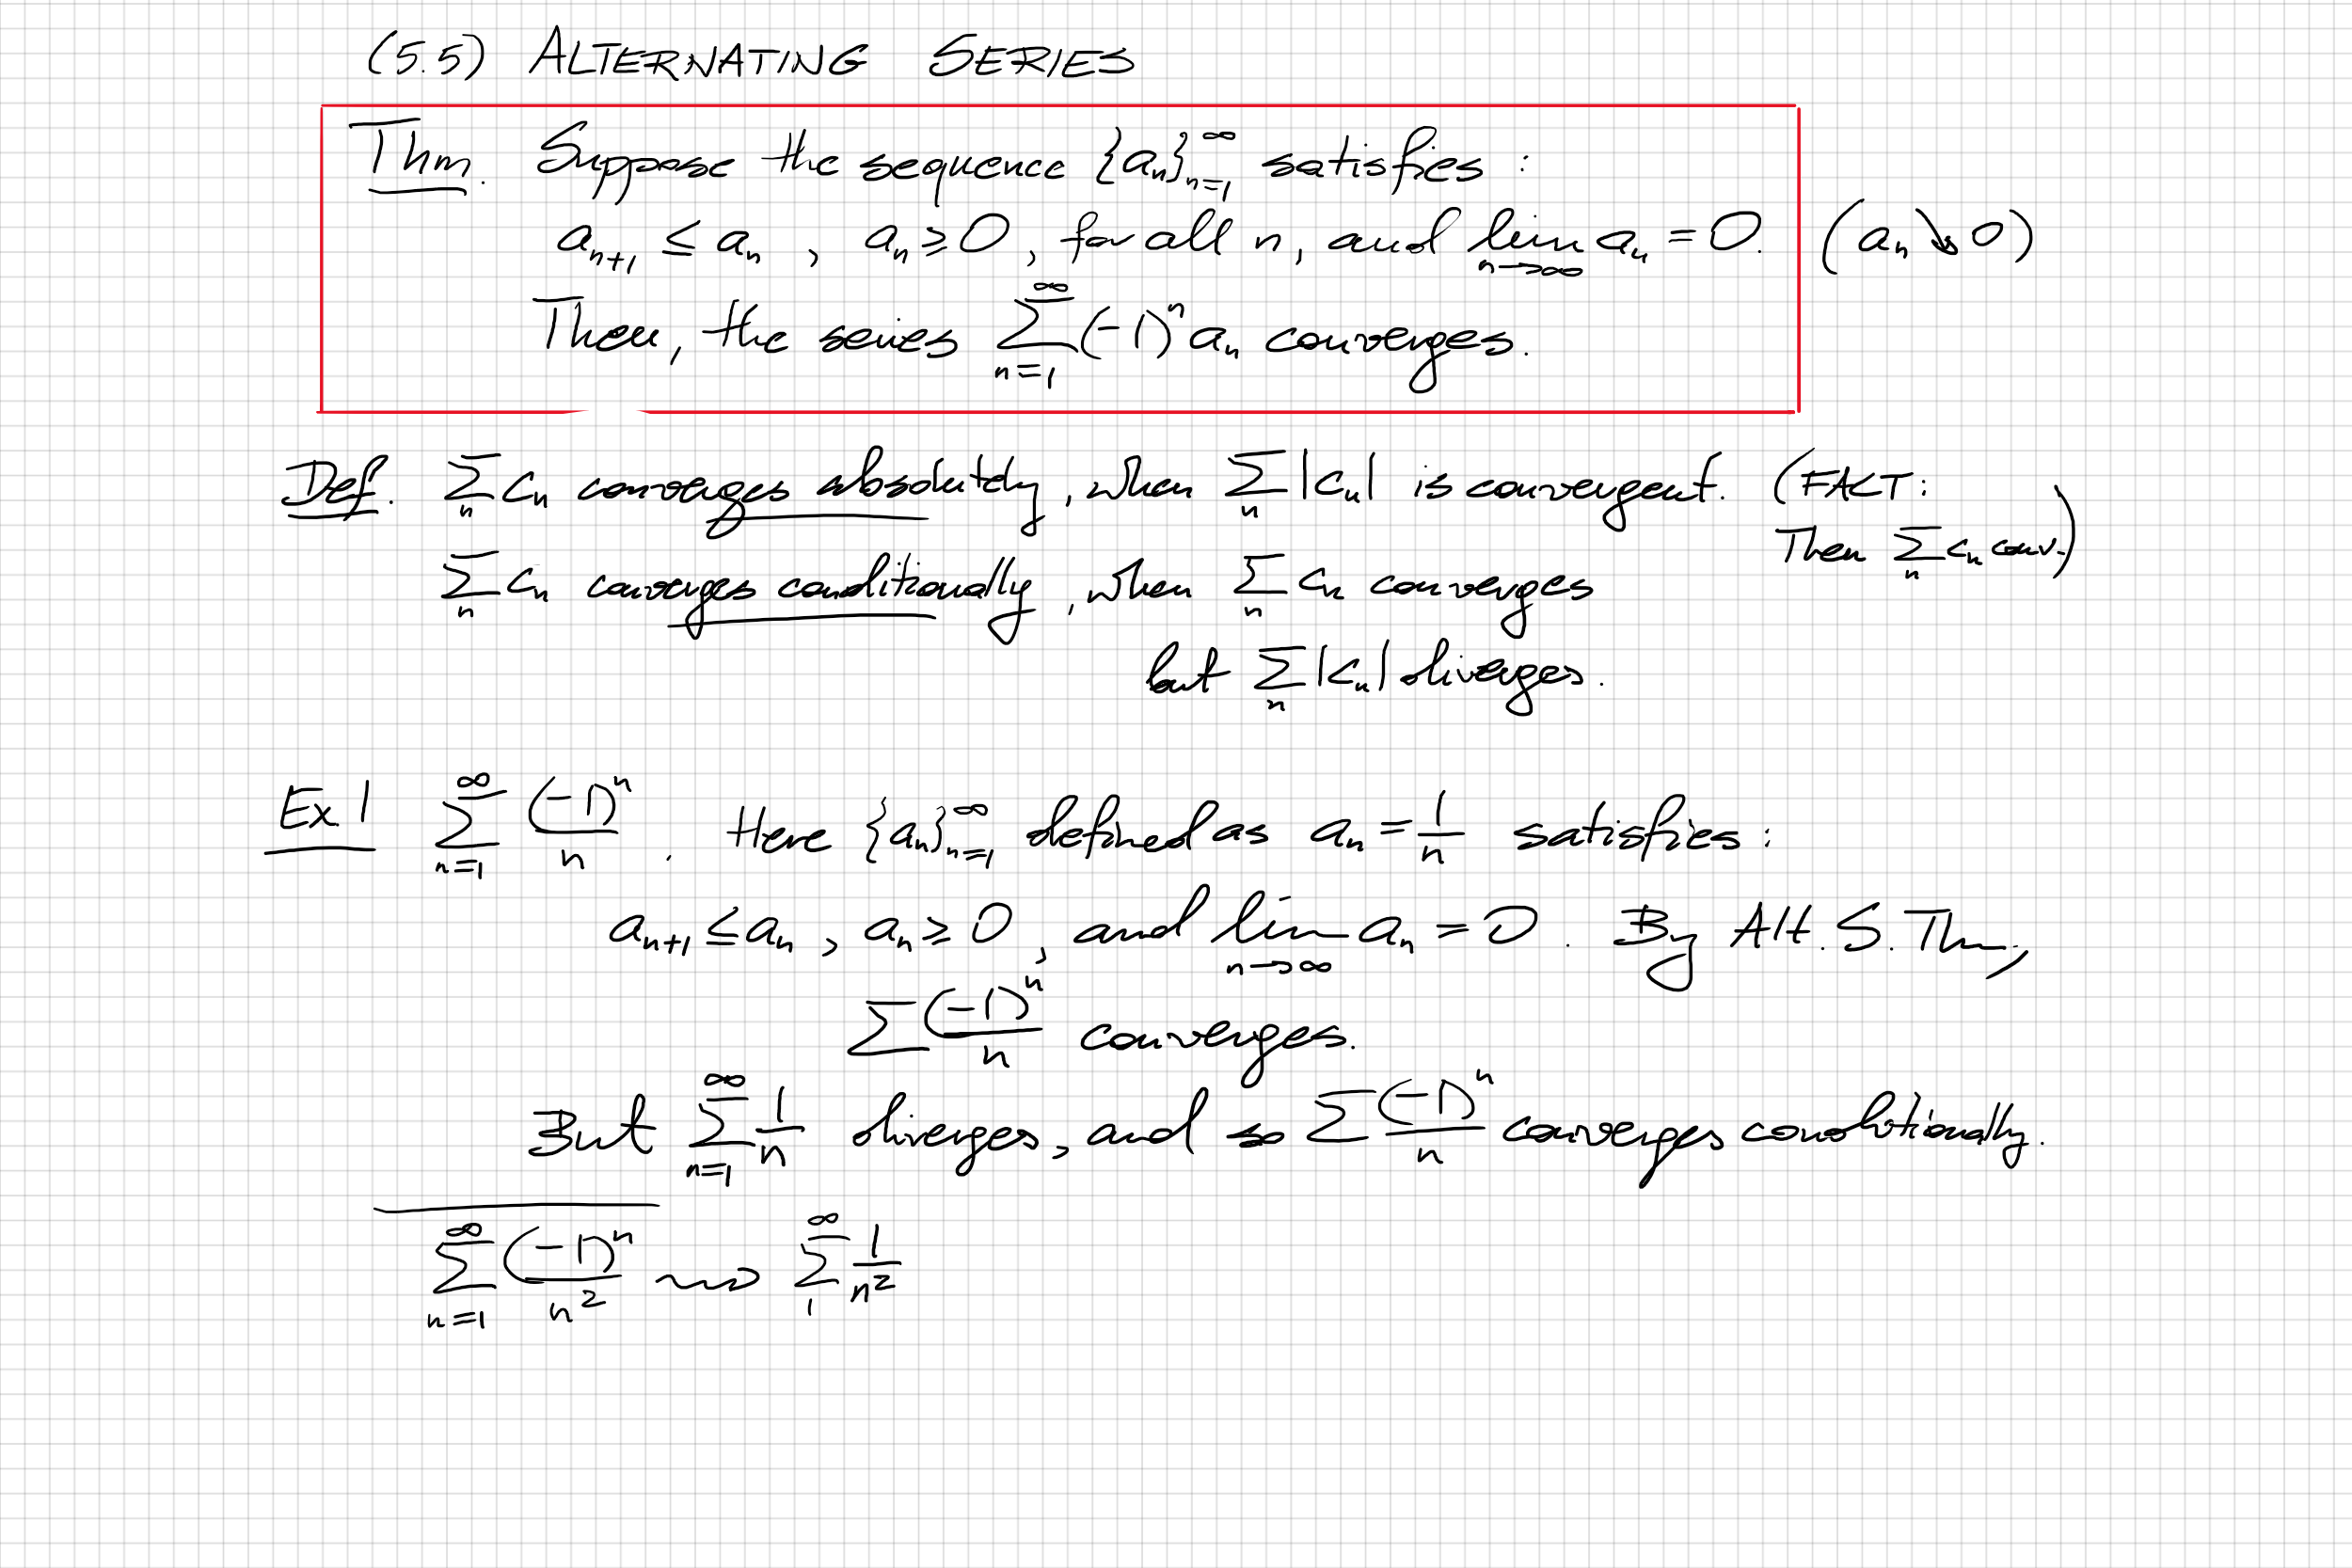 (5.5) ALTERNATING SERIES
Thm. Suppose the sequence {aₙ}ₙ₌₁^∞ satisfies :
aₙ₊₁ ≤ aₙ , aₙ ≥ 0 , for all n, and lim_{n→∞} aₙ = 0. (aₙ ↘ 0)
Then, the series ∑_{n=1}^∞ (-1)ⁿ aₙ converges.
Def. ∑_n cₙ converges absolutely, when ∑_n |cₙ| is convergent. (FACT:
Then ∑_n cₙ conv.)
∑_n cₙ converges conditionally, when ∑_n cₙ converges
but ∑_n |cₙ| diverges.
Ex 1 ∑_{n=1}^∞ (-1)ⁿ/n . Here {aₙ}ₙ₌₁^∞ defined as aₙ = 1/n satisfies :
aₙ₊₁ ≤ aₙ , aₙ ≥ 0 , and lim_{n→∞} aₙ = 0 . By Alt. S. Thm,
∑ (-1)ⁿ/n converges.
But ∑_{n=1}^∞ 1/n diverges, and so ∑ (-1)ⁿ/n converges conditionally.
∑_{n=1}^∞ (-1)ⁿ/n² ⇝ ∑_1^∞ 1/n²